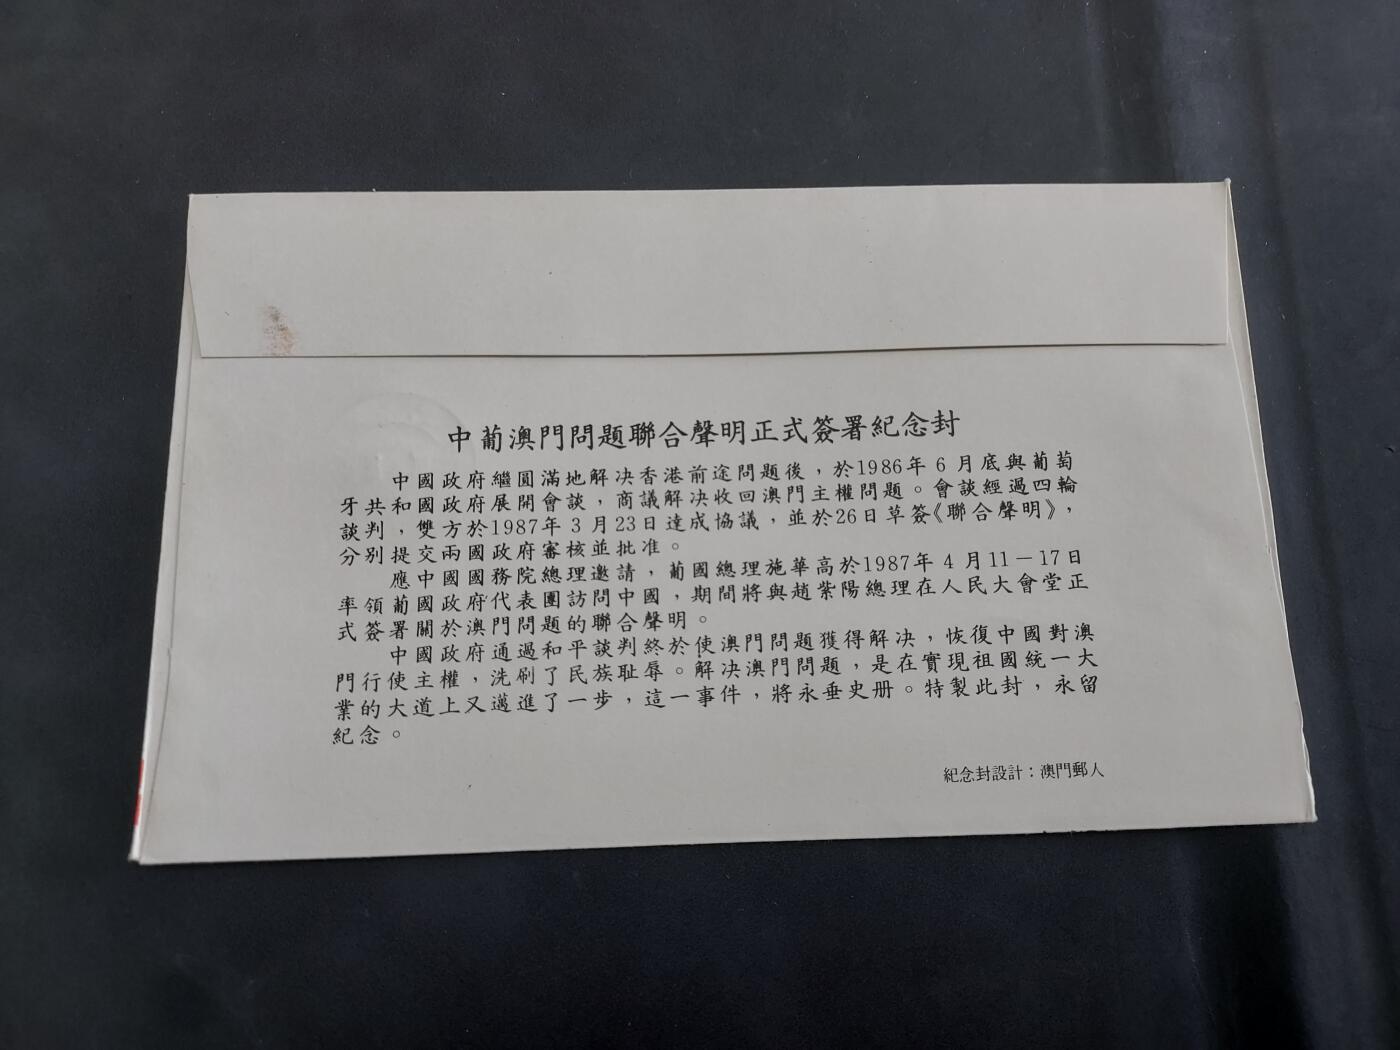 中葡澳門問題聯合聲明正式簽署紀念封
中國政府繼圓滿地解决香港前途問題後，於1986年6月底與葡萄
牙共和國政府展開會談，商議解决收回澳門主權問題。會談經過四輪
談判，雙方於1987年3月23日達成協議，並於26日草簽《聯合聲明》，
分別提交兩國政府審核並批准。
應中國國務院總理邀請，葡國總理施華高於1987年4月11－17日
率領葡國政府代表團訪問中國，期間將與趙紫陽總理在人民大會堂正
式簽署關於澳門問題的聯合聲明。
中國政府通過和平談判終於使澳門問題獲得解决，恢復中國對澳
門行使主權，洗刷了民族耻辱。解决澳門問題，是在實現祖國統一大
業的大道上又邁進了一步，這一事件，將永垂史册。特製此封，永留
紀念。
紀念封設計：澳門郵人